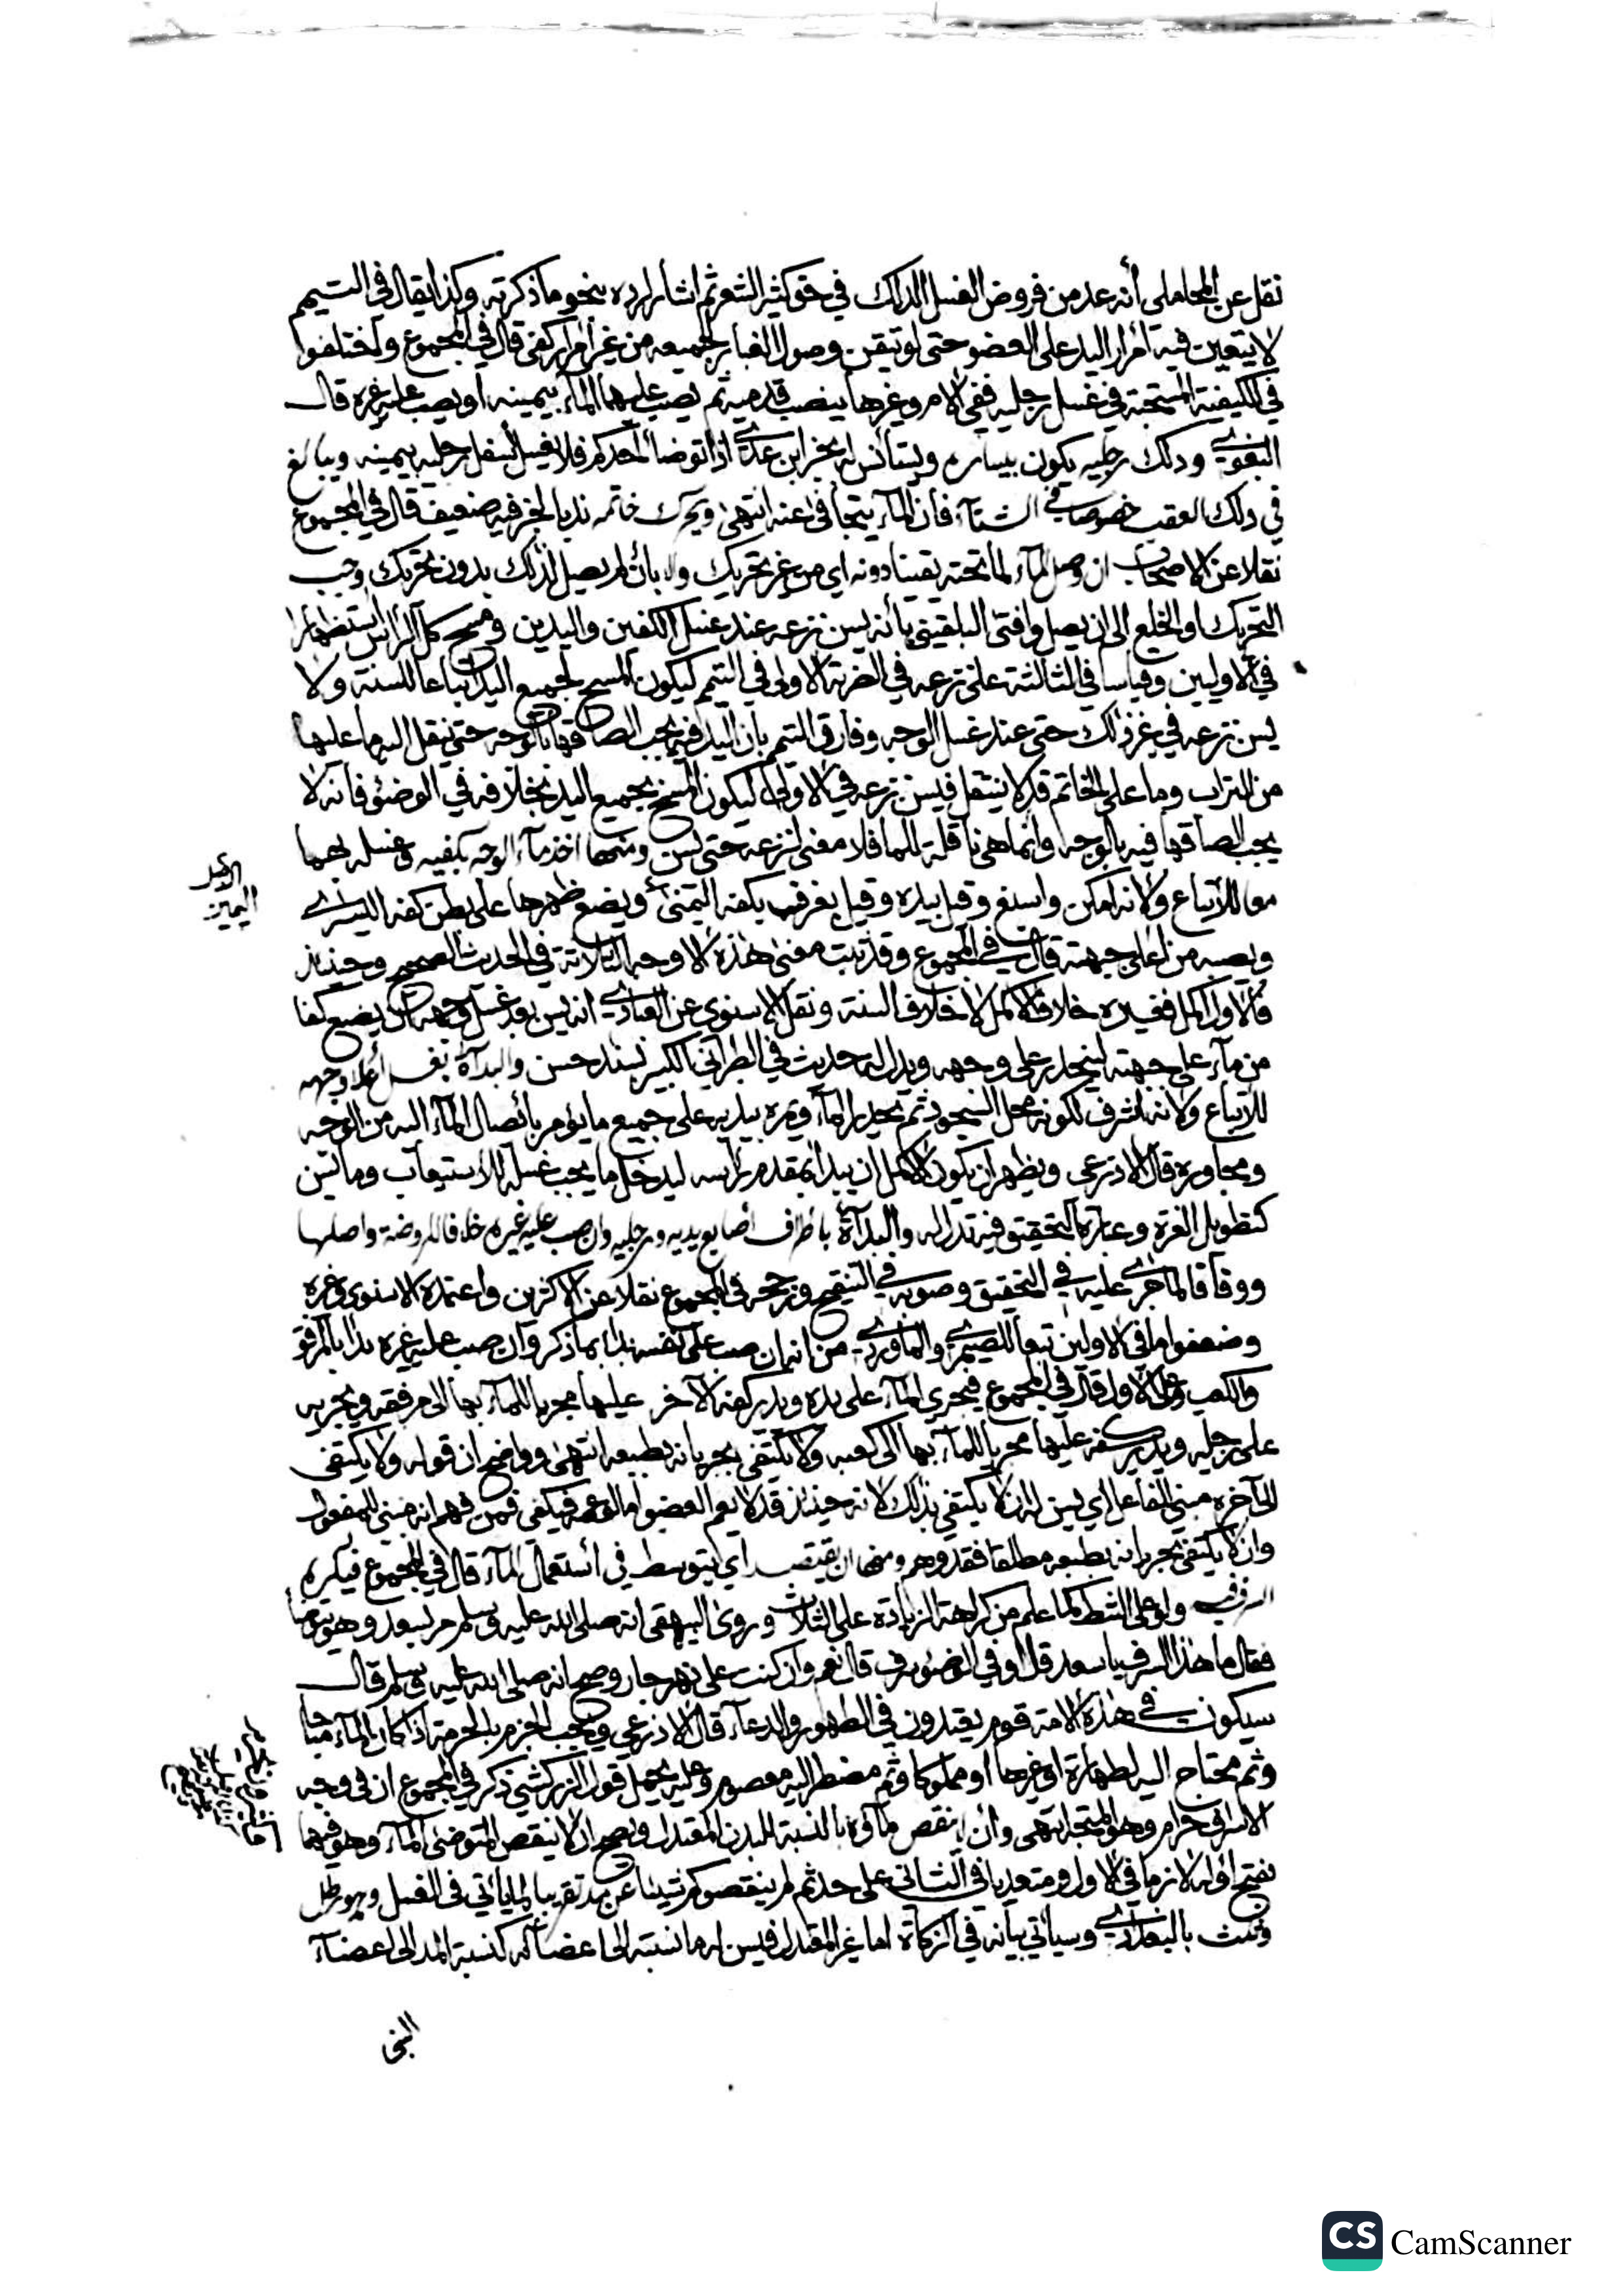 نقل عن المحاملى أنه عد من فروض الغسل الدلك في حق كثير الشعر ثم اشار لرده بنحو ما ذكرته وكذا يقال في التيمم
لا يتعين فيه أمرار اليد على العضو حتى لو تيقن وصول الغبار لجميعه من غير أمرار كفى قال في المجموع واختلفوا
في الكيفية المستحبة في غسل رجليه ففي الام وغيرها ينصب قدميه ثم يصب عليهما الماء بيمينه او يصب عليه غيره قال
البغوي ودلك رجليه يكون بيساره ويستأنس له بخبر ابن عدي اذا توضأ أحدكم فلا يغسل أسفل رجليه بيمينه ويبالغ
في دلك العقب خصوصا في الشتاء فان الماء يتجافى عنه انتهى ويحرك خاتمه ندبا لخبر فيه ضعيف قال في المجموع
نقلا عن الاصحاب ان وصل الماء لما تحته يقينا دونه اي من غير تحريك والا بأن لم يصل لذلك بدون تحريك وجب
التحريك او الخلع الى ان يصل وافتى البلقيني بأنه يسن نزعه عند غسل الكفين واليدين ومسح كل الرأس استظهارا
في الاوليين وقياسا في الثالثة على نزعه في الضربة الاولى في التيمم ليكون المسح لجميع اليد اتباعا للسنة ولا
يسن نزعه في غير ذلك حتى عند غسل الوجه وفارق التيمم بأن اليد فيه يجب الصاقها بالوجه حتى ينتقل اليه ما عليها
من التراب وما على الخاتم قد لا ينتقل فيسن نزعه في الاولى ليكون المسح بجميع اليد بخلافه في الوضوء فأنه لا
يجب الصاقها فيه بالوجه وانما هي ناقلة للما فلا معنى لنزعه حتى يسن ومنها اخذ ماء الوجه بكفيه وغسله بهما
معا للاتباع ولانه امكن واسبغ وقيل بيده وقيل يغرف بكفه اليمنى ويضع ظهرها على بطن كفه اليسرى
ويصبه من أعلى جبهته قال في المجموع وقد ثبت معنى هذه الاوجه الثلاثة في الحديث الصحيح وحينئذ
فالاول اكمل فغيره خلاف الاكمل لا خلاف السنة ونقل الاسنوي عن العبادي انه يسن بعد غسل وجهه ان يضع كفا
من ماء على جبهته لينحدر على وجهه ويدل له حديث في الطبراني الكبير بسند حسن والبداة بغسل أعلا وجهه
للاتباع ولانه اشرف لكونه محل السجود ثم يحدر الماء ويمره بيديه على جميع ما يؤمر بأيصال الماء اليه من الوجه
ومجاوره قال الاذرعي ويظهر ان يكون الاكمل ان يبدأ بمقدم رأسه ليدخل ما يجب غسله للاستيعاب وما يسن
كتطويل الغرة وعبارة التحقيق فيه تدل له والبدآة باطراف أصابع يديه ورجليه وان صب عليه غيره خلافا للروضة واصلها
ووفاقا لما جرى عليه في التحقيق وصوبه في التنقيح ورجحه في المجموع نقلا عن الاكثرين واعتمده الاسنوي وغيره
وضعفوا ما في الاولين تبعا للصيمري والماوردي من انه ان صب على نفسه بدأ بما ذكر وان صب عليه غيره بدا بالمرفق
والكعب وعلى الاول قال في المجموع فيجري الماء على يده ويدير كفه الاخر عليها مجريا للماء بها الى مرفقه ويجريه
على رجله ويدير كفه عليها مجريا للماء بها الى كعبه ولا يكتفي بجريانه بطبعه انتهى وواضح ان قوله ولا يكتفي
الى آخره مبنى للفاعل اي يسن له ان لا يكتفي بذلك لانه حينئذ قد لا يعم العضو اما لو عمه فيكفي فمن فهم انه مبنى للمفعول
وان لا يكتفي بجريانه بطبعه مطلقا فقد وهم ومنها ان يقتصد اي يتوسط في أستعمال الماء قال في المجموع فيكره
السرف ولو على الشط كما علم من كراهة الزيادة على الثلاث وروى البيهقي انه صلى الله عليه وسلم مر بسعد وهو يتوضأ
فقال ما هذا السرف يا سعد قال أوفي الوضوء سرف قال نعم وان كنت على نهر جار وصح انه صلى الله عليه وسلم قال
سيكون في هذه الامة قوم يعتدون في الطهور والدعاء قال الاذرعي ويجب الجزم بالحرمة اذا كان الماء مباحا
وثم محتاج اليه لطهارة او غيرها أو مملوكا وثم مضطر اليه معصوم وعليه يحمل قول الزركشي ذكر في المجموع ان في وجه
الاسراف حرام وهو المتجه انتهى وأن لا ينقص ماؤه بالنسبة للبدن المعتدل ويصح ان لا ينقص المتوضئ الماء وهو فيهما
بفتح اوله لازما في الاول ومتعديا في الثاني على حد ثم لم ينقصوكم شيئا عن مد تقريبا لما يأتي في الغسل وهو رطل
وثلث بالبغدادي وسيأتي بيانه في الزكاة اما غير المعتدل فيسن له ما نسبته الى اعضائه كنسبة المد الى اعضاء
النبى
CS CamScanner